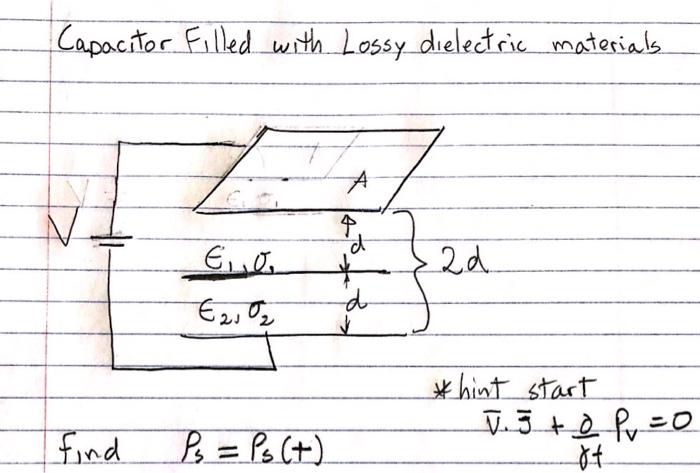 Capacitor Filled with Lossy dielectric materials
A
V
d
ϵ₁, σ₁
2d
d
ϵ₂, σ₂
* hint start
∇̅ · J̅ + ∂/∂t ρᵥ = 0
find ρₛ = ρₛ(t)